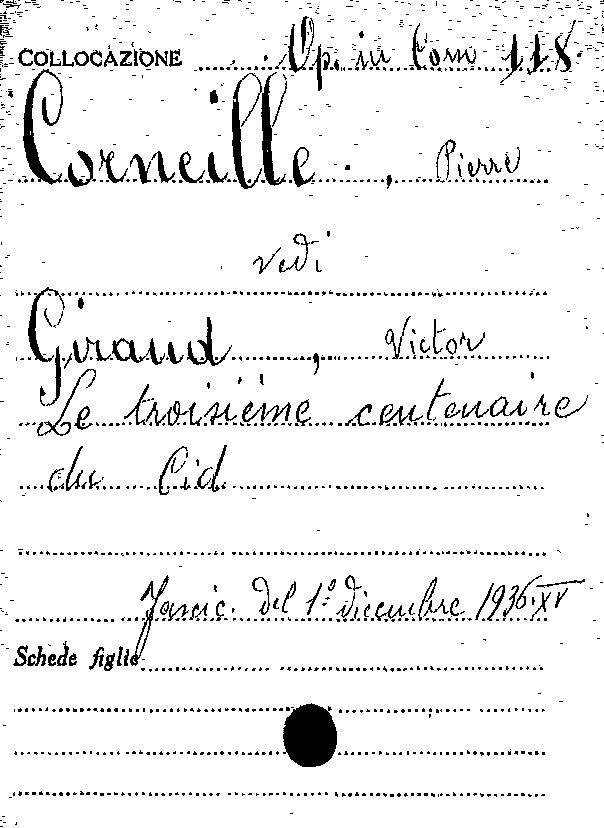 COLLOCAZIONE Op. in Com 118.
Corneille, Pierre
vedi
Giraud, Victor
Le troisième centenaire
du Cid
Fascic. del 1º dicembre 1936.XV
Schede figlie